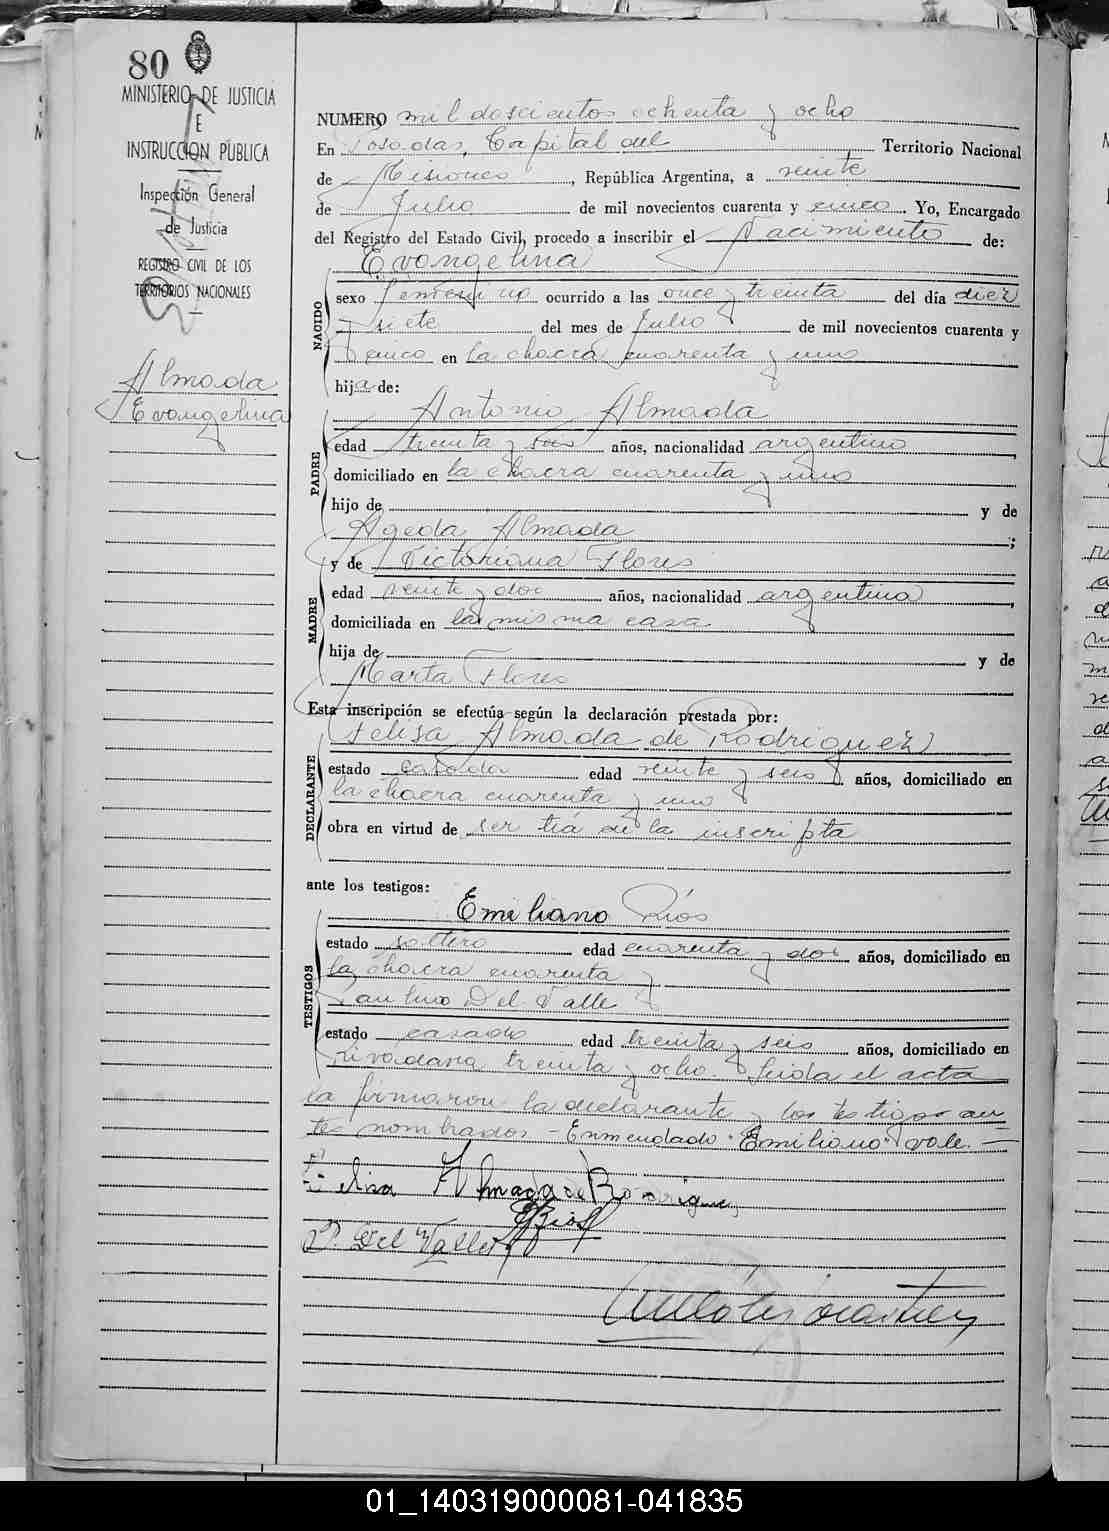 80
MINISTERIO DE JUSTICIA
E
INSTRUCCION PUBLICA
Inspección General
de Justicia
REGISTRO CIVIL DE LOS
TERRITORIOS NACIONALES
Almada
Evangelina
NUMERO mil doscientos ochenta y ocho
En Posadas, Capital del Territorio Nacional
de Misiones, República Argentina, a veinte
de Julio de mil novecientos cuarenta y cinco. Yo, Encargado
del Registro del Estado Civil, procedo a inscribir el Nacimiento de:
Evangelina
NACIDO
sexo femenino ocurrido a las once y treinta del día diez
y siete del mes de Julio de mil novecientos cuarenta y
cinco en la chacra cuarenta y uno
hija de:
Antonio Almada
PADRE
edad treinta y seis años, nacionalidad argentino
domiciliado en la chacra cuarenta y uno
hijo de y de
Ageda Almada ;
y de Victoriana Flores
MADRE
edad veinte y dos años, nacionalidad argentina,
domiciliada en la misma casa
hija de y de
Marta Flores
Esta inscripción se efectúa según la declaración prestada por:
Felisa Almada de Rodriguez
DECLARANTE
estado casada edad veinte y seis años, domiciliado en
la chacra cuarenta y uno
obra en virtud de ser tía de la inscripta
ante los testigos:
Emiliano Ríos
TESTIGOS
estado soltero edad cuarenta y dos años, domiciliado en
la chacra cuarenta y
Paulino Del Valle
estado casado edad treinta y seis años, domiciliado en
Rivadavia treinta y ocho. Leida el acta
la firmaron la declarante y los testigos an
tes nombrados - Enmendado "Emiliano" vale. -
Felisa Almada de Rodriguez
E Rios
P. Del Valle
01_140319000081-041835